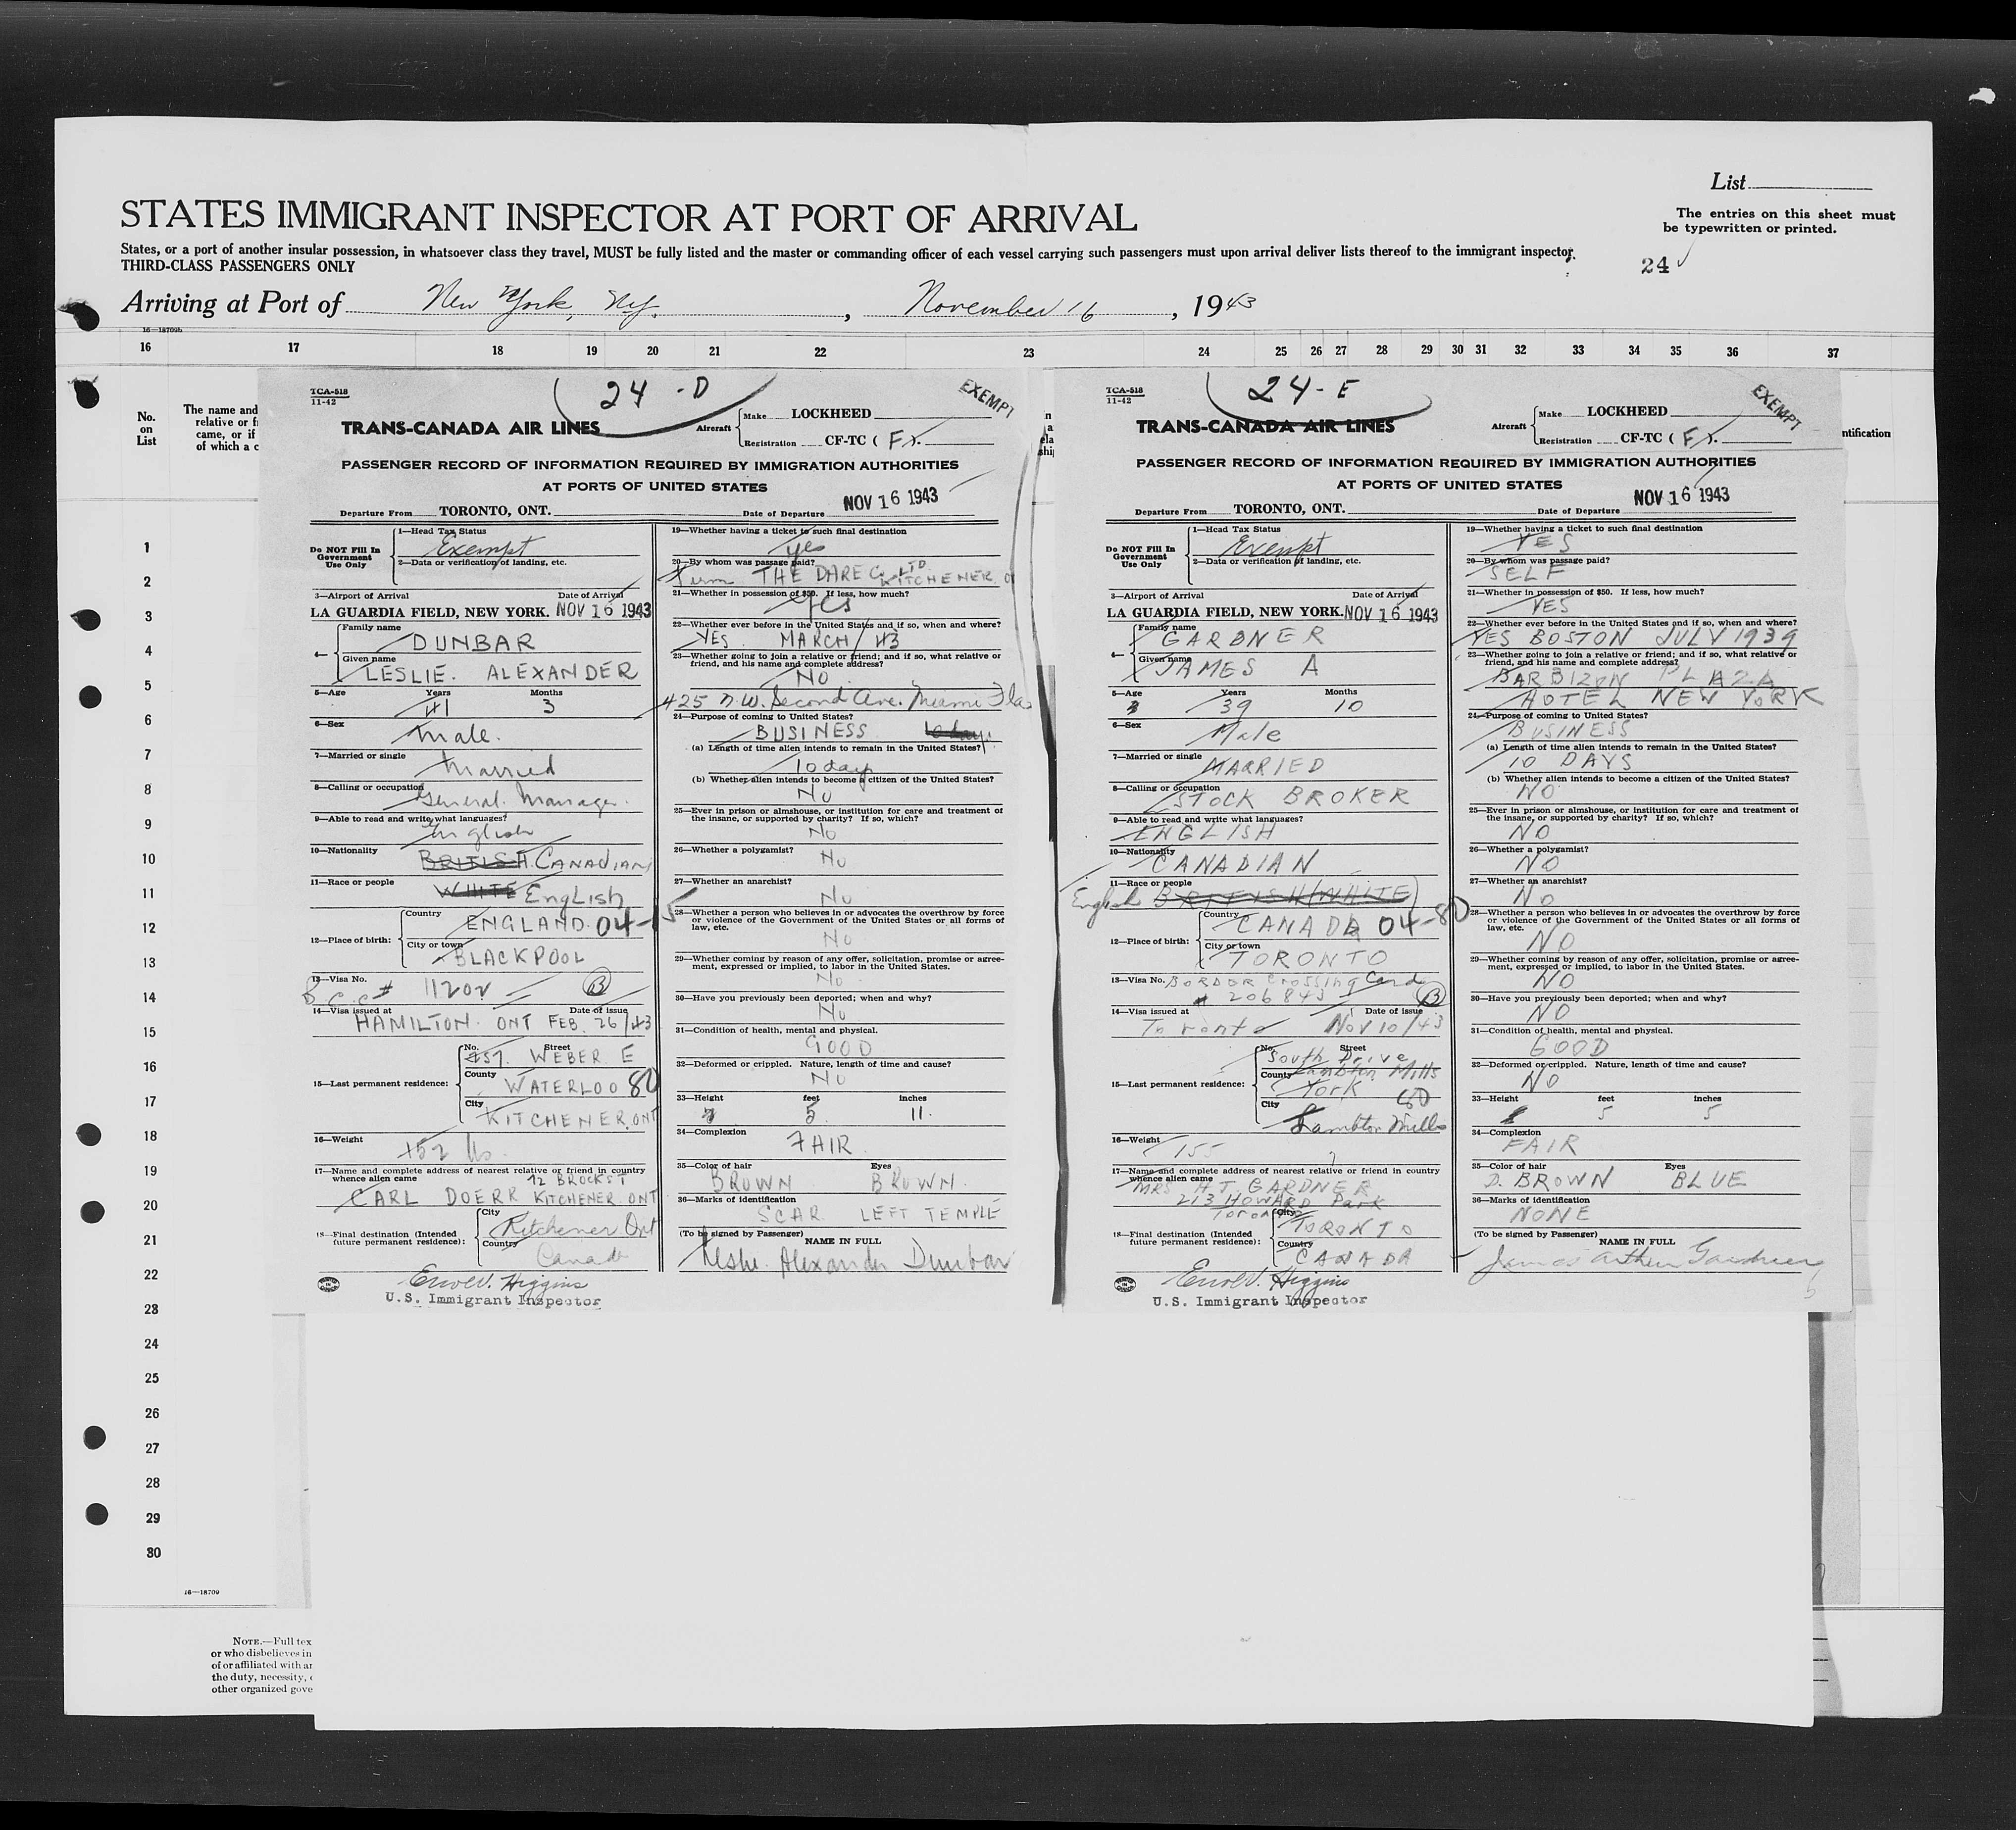 List
STATES IMMIGRANT INSPECTOR AT PORT OF ARRIVAL
The entries on this sheet must
be typewritten or printed.
States, or a port of another insular possession, in whatsoever class they travel, MUST be fully listed and the master or commanding officer of each vessel carrying such passengers must upon arrival deliver lists thereof to the immigrant inspector.
THIRD-CLASS PASSENGERS ONLY
24
Arriving at Port of New York, NY. , November 16 , 1943
16—18709b
16 17 18 19 20 21 22 23 24 25 26 27 28 29 30 31 32 33 34 35 36 37
No.
on
List
The name and
relative or f
came, or if
of which a c
ntification
1
2
3
4
5
6
7
8
9
10
11
12
13
14
15
16
17
18
19
20
21
22
23
24
25
26
27
28
29
30
16—18709
NOTE.—Full tex
or who disbelieves in
of or affiliated with an
the duty, necessity,
other organized gove
TCA-518
11-42
24 - D
EXEMPT
TRANS-CANADA AIR LINES
Aircraft
Make LOCKHEED
Registration CF-TC ( F ).
PASSENGER RECORD OF INFORMATION REQUIRED BY IMMIGRATION AUTHORITIES
AT PORTS OF UNITED STATES
NOV 16 1943
Departure From TORONTO, ONT. Date of Departure
Do NOT Fill In
Government
Use Only
1—Head Tax Status
Exempt
2—Data or verification of landing, etc.
3—Airport of Arrival Date of Arrival
LA GUARDIA FIELD, NEW YORK. NOV 16 1943
4—
Family name
DUNBAR
Given name
LESLIE. ALEXANDER
5—Age Years Months
41 3
6—Sex
Male.
7—Married or single
Married
8—Calling or occupation
General Manager.
9—Able to read and write what languages?
English
10—Nationality
BRITISH. CANADIAN
11—Race or people
WHITE English
12—Place of birth:
Country
ENGLAND. 04-15
City or town
BLACKPOOL
13—Visa No.
B.C.C# 11202 B
14—Visa issued at Date of issue
HAMILTON. ONT FEB. 26/43
15—Last permanent residence:
No. Street
457. WEBER E
County
WATERLOO 80
City
KITCHENER, ONT
16—Weight
152 lbs.
17—Name and complete address of nearest relative or friend in country
whence alien came
72 BROCK ST
CARL DOERR KITCHENER. ONT
18—Final destination (Intended
future permanent residence):
City
Kitchener Ont
Country
Canada
Errol V. Higgins
U.S. Immigrant Inspector
19—Whether having a ticket to such final destination
yes
20—By whom was passage paid?
Firm THE DARE Co. LTD. KITCHENER, O
21—Whether in possession of $50. If less, how much?
Yes
22—Whether ever before in the United States and if so, when and where?
YES. MARCH / 43
23—Whether going to join a relative or friend; and if so, what relative or
friend, and his name and complete address?
NO
425 N.W. Second Ave. Miami Fla
24—Purpose of coming to United States?
BUSINESS
(a) Length of time alien intends to remain in the United States?
10 days
(b) Whether alien intends to become a citizen of the United States?
NO
25—Ever in prison or almshouse, or institution for care and treatment of
the insane, or supported by charity? If so, which?
NO
26—Whether a polygamist?
NO
27—Whether an anarchist?
NO
28—Whether a person who believes in or advocates the overthrow by force
or violence of the Government of the United States or all forms of
law, etc.
NO
29—Whether coming by reason of any offer, solicitation, promise or agree-
ment, expressed or implied, to labor in the United States.
NO
30—Have you previously been deported; when and why?
NO
31—Condition of health, mental and physical.
GOOD
32—Deformed or crippled. Nature, length of time and cause?
NO
33—Height feet inches
5 11.
34—Complexion
FAIR
35—Color of hair Eyes
BROWN BROWN.
36—Marks of identification
SCAR LEFT TEMPLE
(To be signed by Passenger) NAME IN FULL
Leslie Alexander Dunbar
TCA-518
11-42
24 - E
EXEMPT
TRANS-CANADA AIR LINES
Aircraft
Make LOCKHEED
Registration CF-TC ( F ).
PASSENGER RECORD OF INFORMATION REQUIRED BY IMMIGRATION AUTHORITIES
AT PORTS OF UNITED STATES
NOV 16 1943
Departure From TORONTO, ONT. Date of Departure
Do NOT Fill In
Government
Use Only
1—Head Tax Status
Exempt
2—Data or verification of landing, etc.
3—Airport of Arrival Date of Arrival
LA GUARDIA FIELD, NEW YORK. NOV 16 1943
4—
Family name
GARDNER
Given name
JAMES A
5—Age Years Months
39 10
6—Sex
Male
7—Married or single
MARRIED
8—Calling or occupation
STOCK BROKER
9—Able to read and write what languages?
ENGLISH
10—Nationality
CANADIAN
11—Race or people
English BRITISH (WHITE)
12—Place of birth:
Country
CANADA 04-80
City or town
TORONTO
13—Visa No. BORDOR Crossing Card
# 206843 B
14—Visa issued at Date of issue
Toronto Nov 10/43
15—Last permanent residence:
No. Street
South Drive
Lambton Mills
County
York 80
City
Lambton Mills
16—Weight
155
17—Name and complete address of nearest relative or friend in country
whence alien came
MRS H.T. GARDNER
213 HOWARD Park
Toronto
18—Final destination (Intended
future permanent residence):
City
TORONTO
Country
CANADA
Errol V. Higgins
U.S. Immigrant Inspector
19—Whether having a ticket to such final destination
YES
20—By whom was passage paid?
SELF
21—Whether in possession of $50. If less, how much?
YES
22—Whether ever before in the United States and if so, when and where?
YES BOSTON JULY 1939
23—Whether going to join a relative or friend; and if so, what relative or
friend, and his name and complete address?
BARBIZON PLAZA
HOTEL NEW YORK
24—Purpose of coming to United States?
BUSINESS
(a) Length of time alien intends to remain in the United States?
10 DAYS
(b) Whether alien intends to become a citizen of the United States?
NO
25—Ever in prison or almshouse, or institution for care and treatment of
the insane, or supported by charity? If so, which?
NO
26—Whether a polygamist?
NO
27—Whether an anarchist?
NO
28—Whether a person who believes in or advocates the overthrow by force
or violence of the Government of the United States or all forms of
law, etc.
NO
29—Whether coming by reason of any offer, solicitation, promise or agree-
ment, expressed or implied, to labor in the United States.
NO
30—Have you previously been deported; when and why?
NO
31—Condition of health, mental and physical.
GOOD
32—Deformed or crippled. Nature, length of time and cause?
NO
33—Height feet inches
5 5
34—Complexion
FAIR
35—Color of hair Eyes
D. BROWN BLUE
36—Marks of identification
NONE
(To be signed by Passenger) NAME IN FULL
James Arthur Gardner